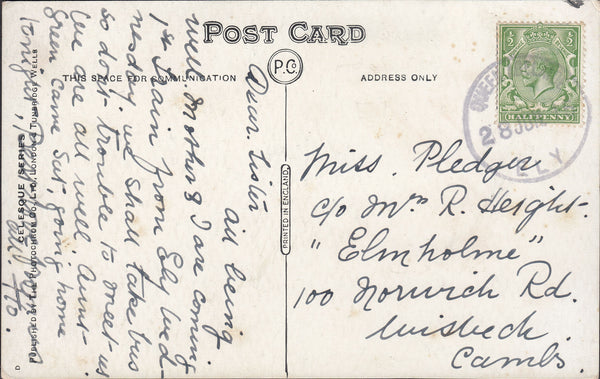 POST CARD
P.Co
THIS SPACE FOR COMMUNICATION
ADDRESS ONLY
Dear Sister
all being
well Mother & I are coming
1st train from Ely Wed-
nesday we shall take bus
so don't trouble to meet us
We are all well Aunt
Green came Sat, going home
tonight
CELESQUE SERIES
PUBLISHED BY THE PHOTOCHROM CO., LTD., LONDON & TUNBRIDGE WELLS
D
PRINTED IN ENGLAND
½ ½
HALFPENNY
28 JU
ELY
Miss. Pledger
c/o Mrs R. Height.
"Elmholme"
100 Norwich Rd.
Wisbech.
Cambs.